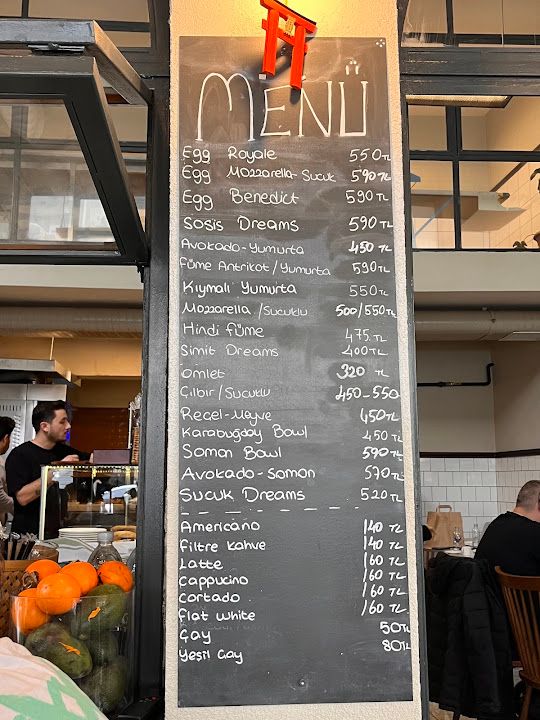 MENÜ
Egg Royale 550TL
Egg Mozzarella-Sucuk 590TL
Egg Benedict 590TL
Sosis Dreams 590TL
Avokado-Yumurta 450TL
Füme Antrikot/Yumurta 590TL
Kıymalı Yumurta 550TL
Mozzarella/Sucuklu 500/550TL
Hindi Füme 475TL
Simit Dreams 400TL
Omlet 320 TL
Çılbır/Sucuklu 450-550
Reçel-Meyve 450TL
Karabuğday Bowl 450TL
Somon Bowl 590TL
Avokado-Somon 570TL
Sucuk Dreams 520TL
Americano 140 TL
Filtre Kahve 140 TL
Latte 160 TL
Cappucino 160 TL
Cortado 160 TL
Flat White 160 TL
Çay 50TL
Yeşil Çay 80TL